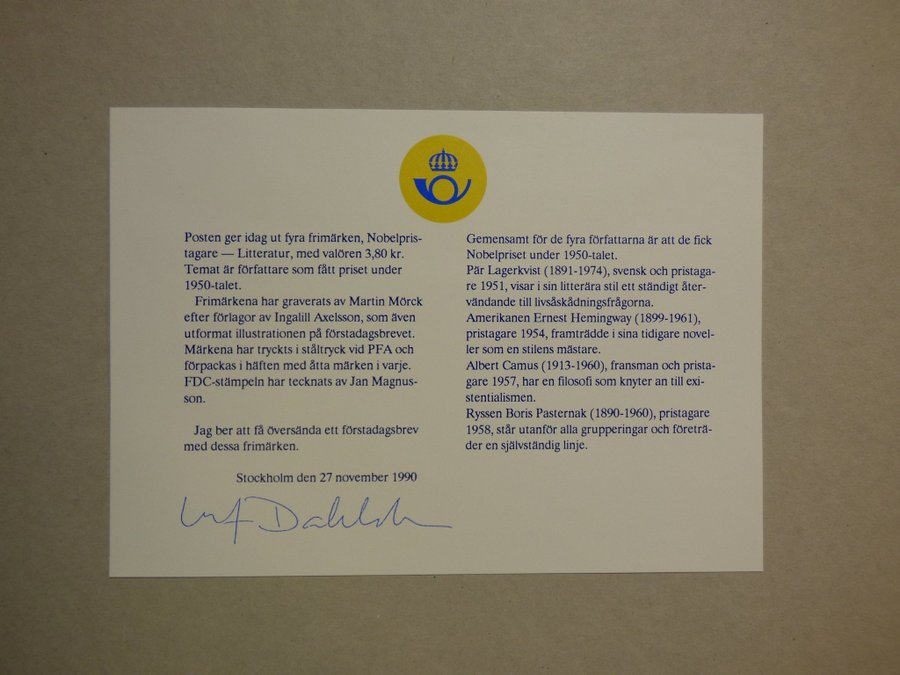 Posten ger idag ut fyra frimärken, Nobelpris-
tagare — Litteratur, med valören 3,80 kr.
Temat är författare som fått priset under
1950-talet.
Frimärkena har graverats av Martin Mörck
efter förlagor av Ingalill Axelsson, som även
utformat illustrationen på förstadagsbrevet.
Märkena har tryckts i ståltryck vid PFA och
förpackas i häften med åtta märken i varje.
FDC-stämpeln har tecknats av Jan Magnus-
son.
Jag ber att få översända ett förstadagsbrev
med dessa frimärken.
Stockholm den 27 november 1990
Gemensamt för de fyra författarna är att de fick
Nobelpriset under 1950-talet.
Pär Lagerkvist (1891-1974), svensk och pristaga-
re 1951, visar i sin litterära stil ett ständigt åter-
vändande till livsåskådningsfrågorna.
Amerikanen Ernest Hemingway (1899-1961),
pristagare 1954, framträdde i sina tidigare novel-
ler som en stilens mästare.
Albert Camus (1913-1960), fransman och prista-
gare 1957, har en filosofi som knyter an till exi-
stentialismen.
Ryssen Boris Pasternak (1890-1960), pristagare
1958, står utanför alla grupperingar och företrä-
der en självständig linje.